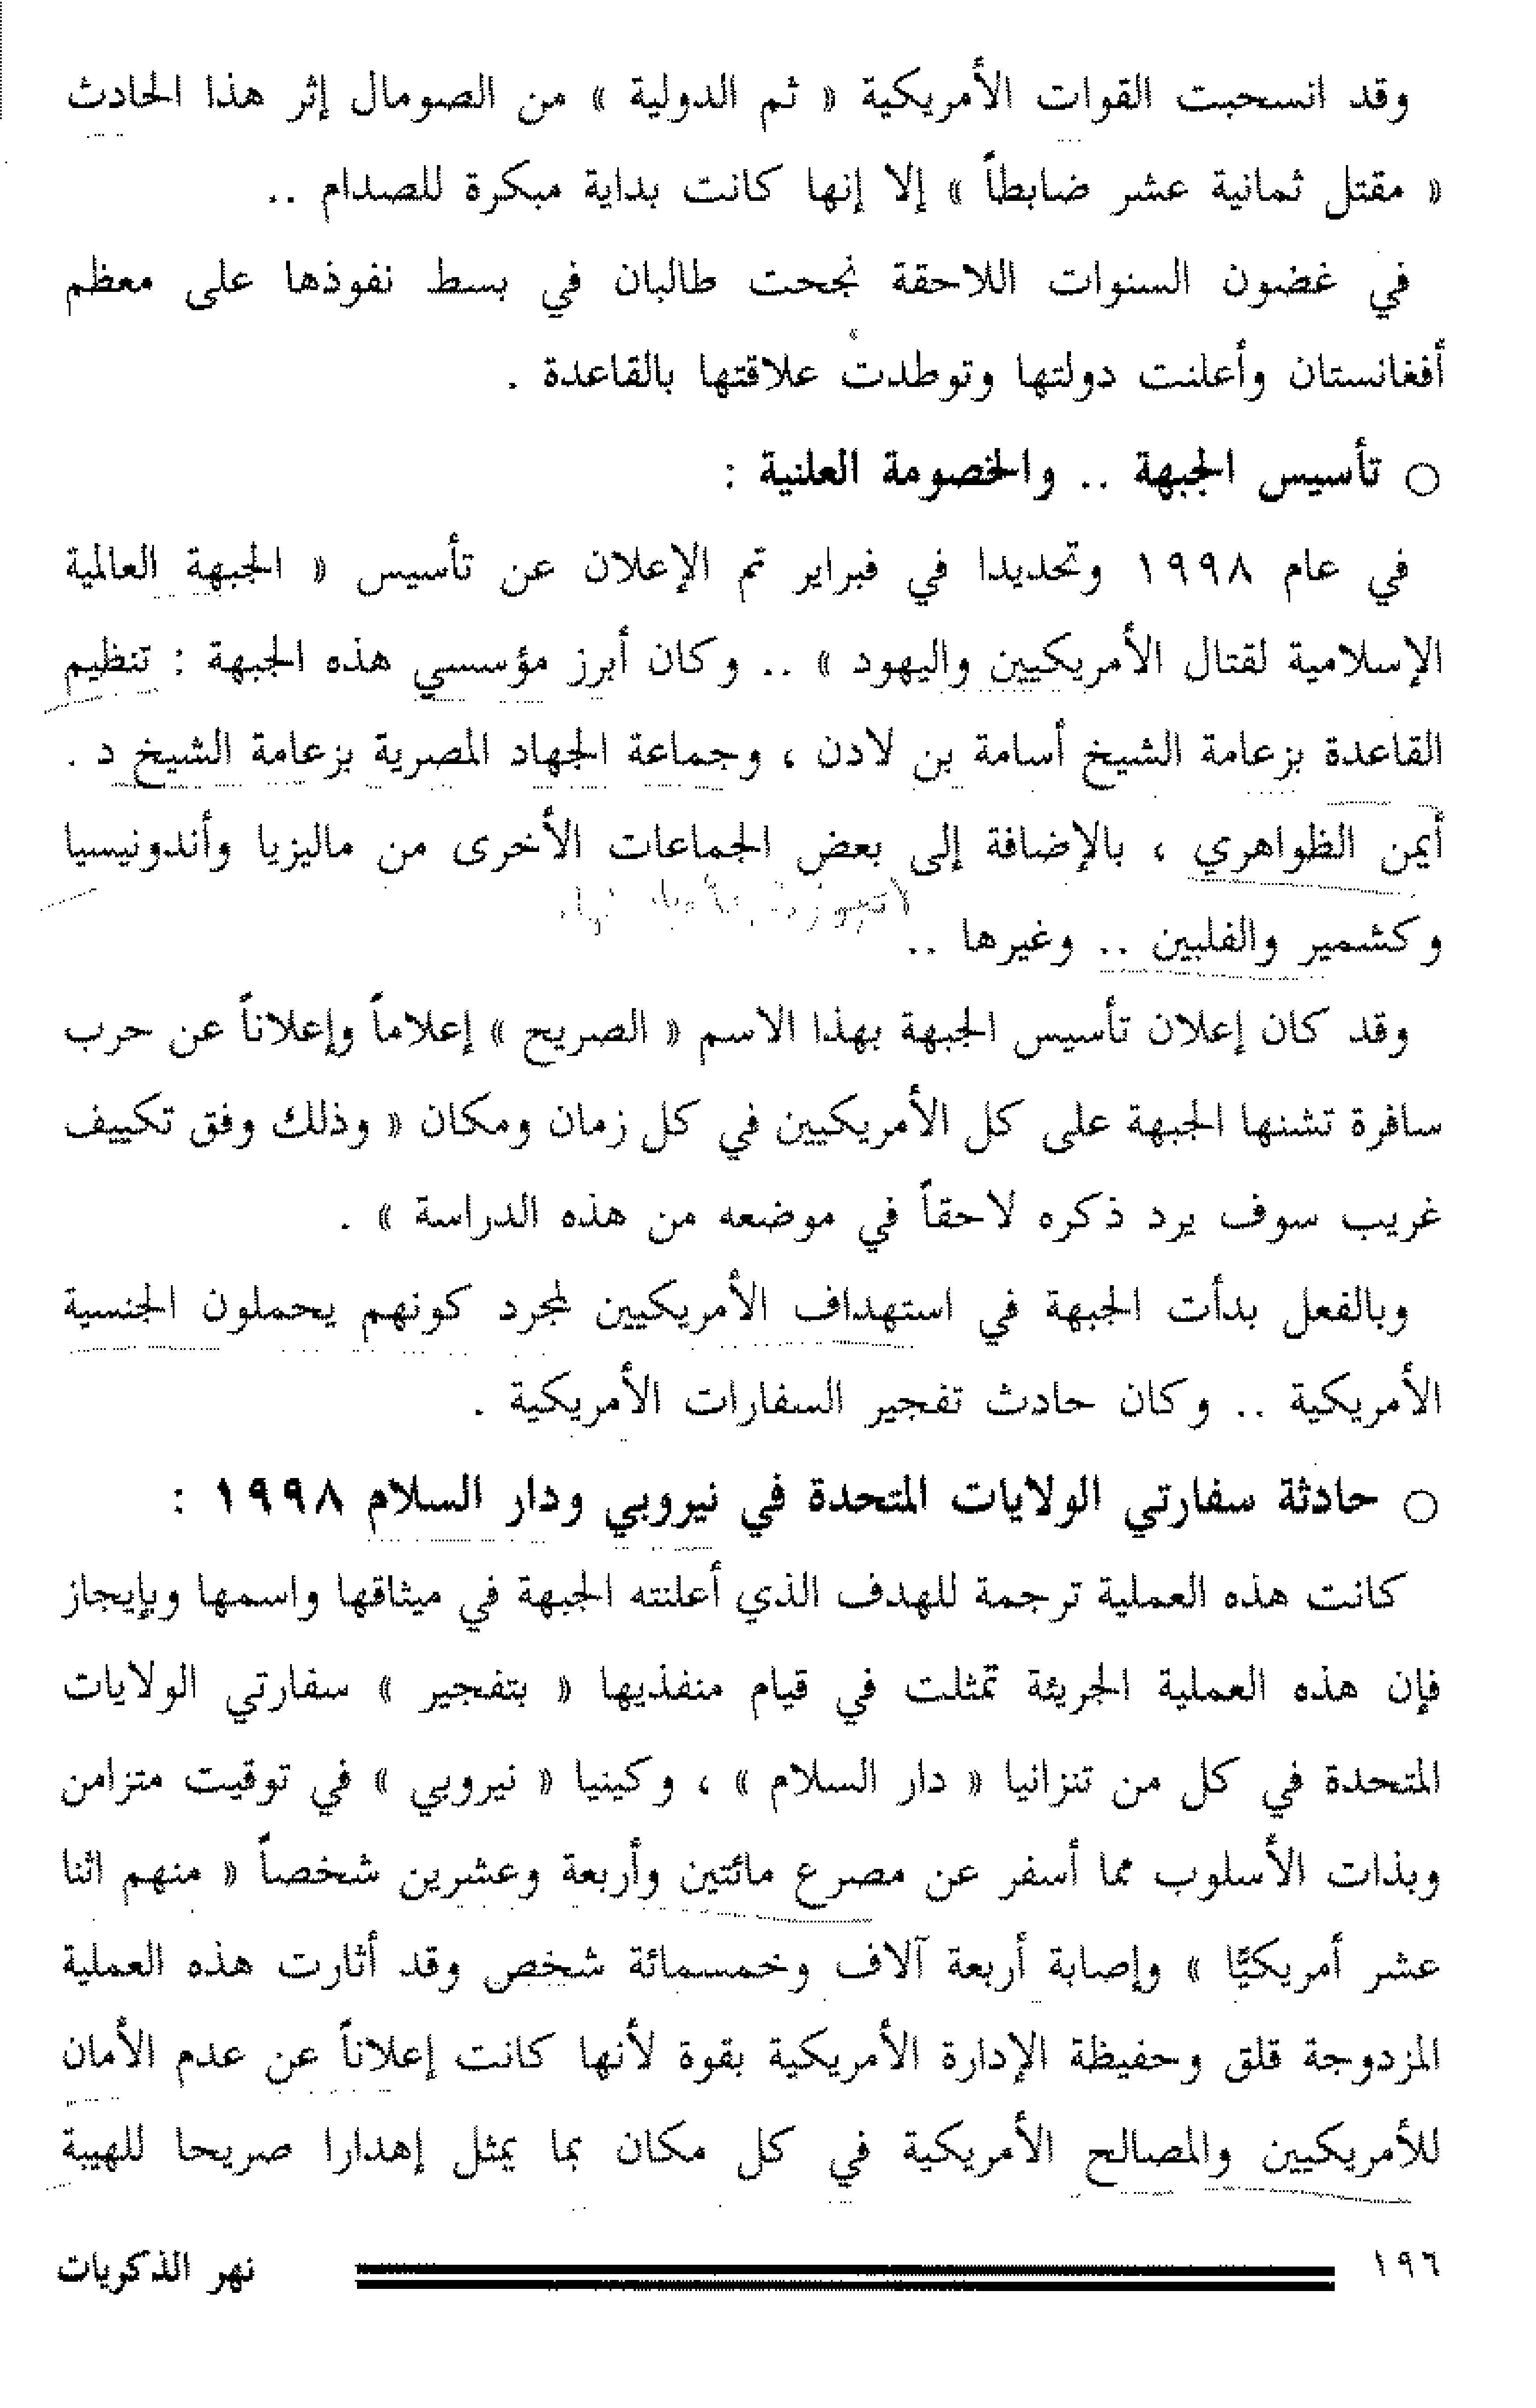 وقد انسحبت القوات الأمريكية « ثم الدولية » من الصومال إثر هذا الحادث
« مقتل ثمانية عشر ضابطاً » إلا إنها كانت بداية مبكرة للصدام ..
في غضون السنوات اللاحقة نجحت طالبان في بسط نفوذها على معظم
أفغانستان وأعلنت دولتها وتوطدت علاقتها بالقاعدة .
○ تأسيس الجبهة .. والخصومة العلنية :
في عام ١٩٩٨ وتحديدا في فبراير تم الإعلان عن تأسيس « الجبهة العالمية
الإسلامية لقتال الأمريكيين واليهود » .. وكان أبرز مؤسسي هذه الجبهة : تنظيم
القاعدة بزعامة الشيخ أسامة بن لادن ، وجماعة الجهاد المصرية بزعامة الشيخ د .
أيمن الظواهري ، بالإضافة إلى بعض الجماعات الأخرى من ماليزيا وأندونيسيا
وكشمير والفلبين .. وغيرها ..
وقد كان إعلان تأسيس الجبهة بهذا الاسم « الصريح » إعلاماً وإعلاناً عن حرب
سافرة تشنها الجبهة على كل الأمريكيين في كل زمان ومكان « وذلك وفق تكييف
غريب سوف يرد ذكره لاحقاً في موضعه من هذه الدراسة » .
وبالفعل بدأت الجبهة في استهداف الأمريكيين لمجرد كونهم يحملون الجنسية
الأمريكية .. وكان حادث تفجير السفارات الأمريكية .
○ حادثة سفارتي الولايات المتحدة في نيروبي ودار السلام ١٩٩٨ :
كانت هذه العملية ترجمة للهدف الذي أعلنته الجبهة في ميثاقها واسمها وبإيجاز
فإن هذه العملية الجريئة تمثلت في قيام منفذيها « بتفجير » سفارتي الولايات
المتحدة في كل من تنزانيا « دار السلام » ، وكينيا « نيروبي » في توقيت متزامن
وبذات الأسلوب مما أسفر عن مصرع مائتين وأربعة وعشرين شخصاً « منهم اثنا
عشر أمريكيًّا » وإصابة أربعة آلاف وخمسمائة شخص وقد أثارت هذه العملية
المزدوجة قلق وحفيظة الإدارة الأمريكية بقوة لأنها كانت إعلاناً عن عدم الأمان
للأمريكيين والمصالح الأمريكية في كل مكان بما يمثل إهدارا صريحا للهيبة
١٩٦ نهر الذكريات